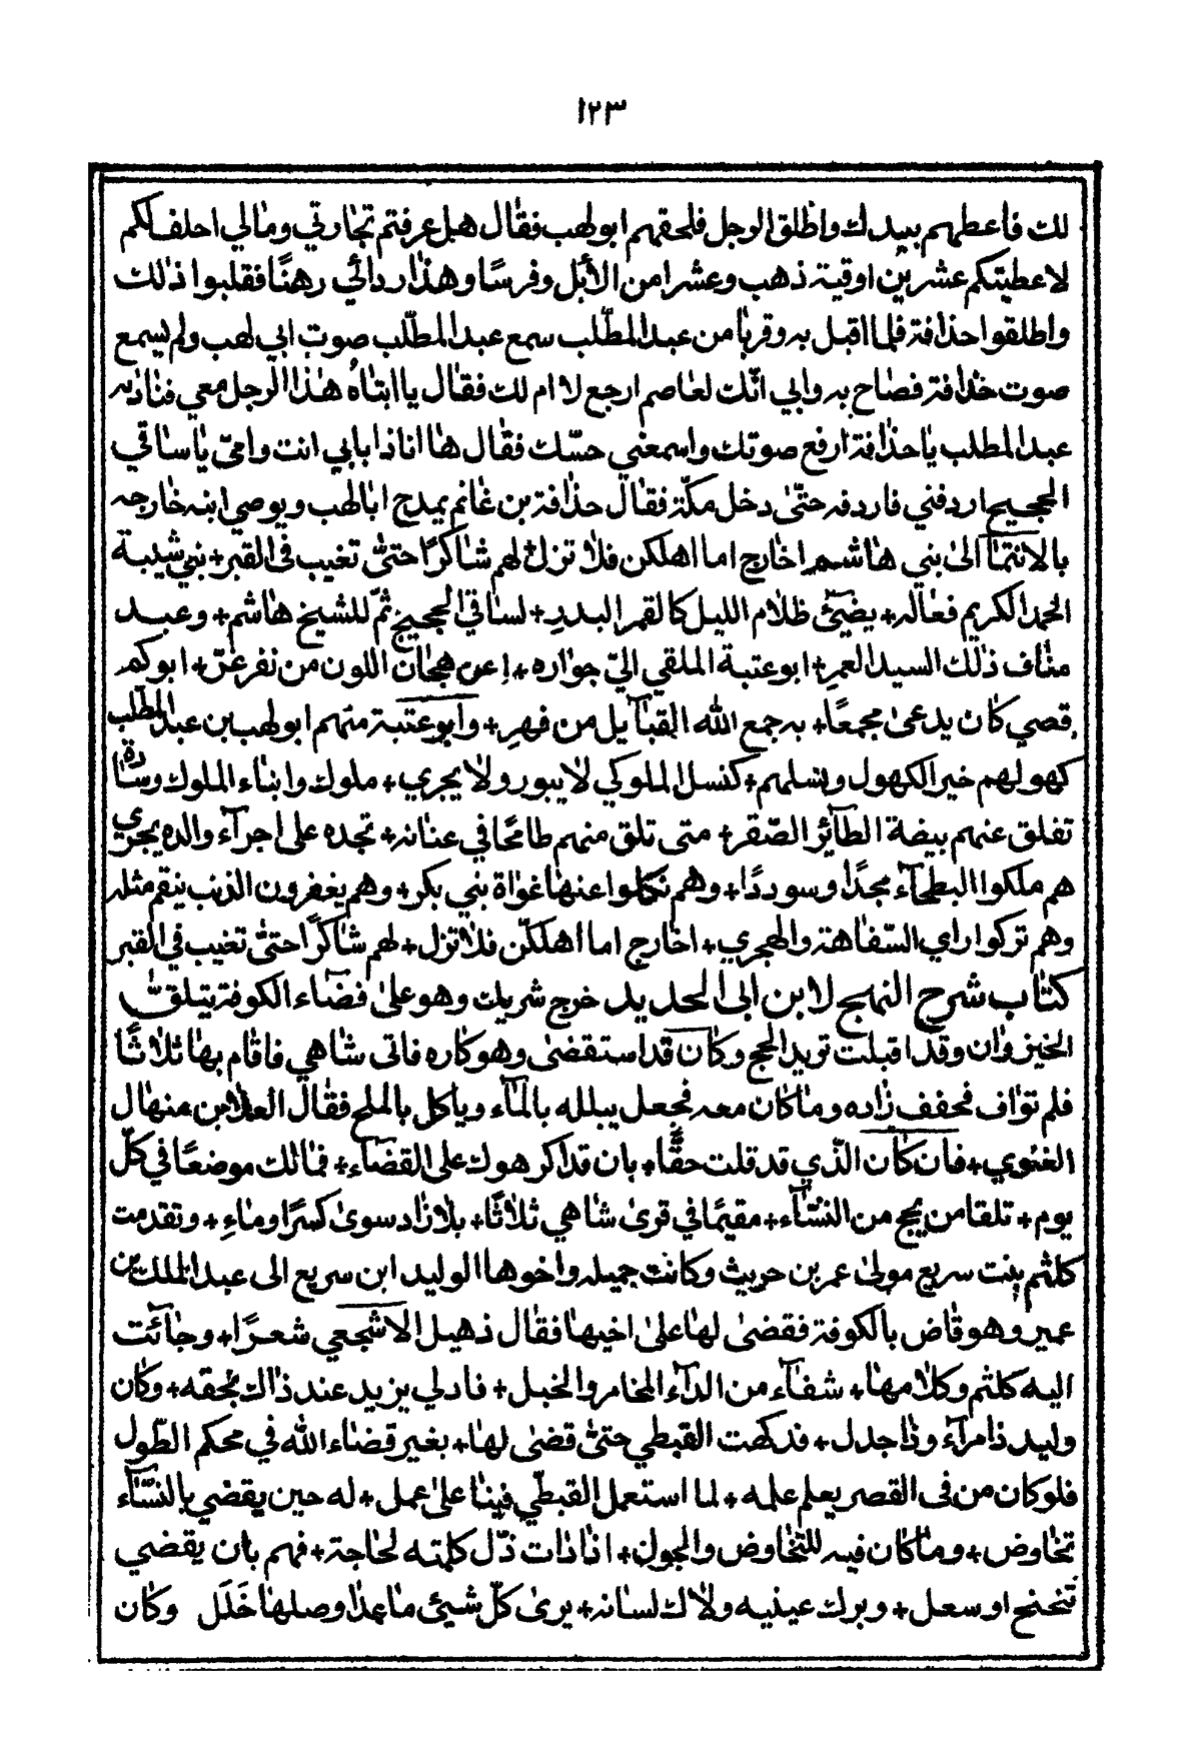 ١٢٣
لك فاعطهم بيدك واطلق الرجل فلحقهم ابو لهب فقال هل عرفتم تجارتي ومالي احلف لكم
لاعطيتكم عشرين اوقية ذهب وعشرا من الأبل وفرسًا وهذا ردائي رهنًا فقلبوا ذلك
واطلقوا حذافة فلما اقبل به وقربا من عبد المطّلب سمع عبد المطّلب صوت ابي لهب ولم يسمع
صوت حذافة فصاح به وابي انّك لعاصم ارجع لا ام لك فقال يا ابتاهُ هذا الرجل معي فناداه
عبد المطلب يا حذافة ارفع صوتك واسمعني حسّك فقال ها انا ذا بابي انت وامّي يا ساقي
الحجيج اردفني فاردفه حتّى دخل مكّة فقال حذافة بن غانم يمدح ابا لهب ويوصي ابنه خارجه
بالانتمآ الى بني هاشم اخارج اما اهلكن فلا تزل لهم شاكرًا حتى تغيب في القبر+ بني شيبة
الحمد الكريم فعاله+ يضيئ ظلام الليل كالقمر البدرِ+ لساقي الحجيج ثمّ للشيخ هاشم+ وعبد
مناف ذلك السيد العمرِ+ ابو عتبة الملقي اليّ جواره+ اعن هجان اللون من نفر عزّ+ ابوكم
قصي كان يدعى مجمعًا+ به جمع الله القبايل من فهرِ+ وابو عتبة منهم ابو لهب بن عبد المطلب
كهولهم خير الكهول ونسلهم+ كنسل الملوكي لا يبور ولا يجري+ ملوك وابناء الملوك وسادة
تفلق عنهم بيضة الطآئر الصّقر+ متى تلق منهم طامحًا في عنانه+ تجده على اجرآء والده يجري
هم ملكوا البطحآء مجدًا وسوددًا+ وهم نكلوا عنها غواة بني بكر+ وهم يغفرون الذنب ينقم مثله
وهم تركوا راي السّفاهة والهجري+ اخارج اما اهلكنّ فلا تزل+ لهم شاكرًا حتى تغيب في القبر
كتاب شرح النهج لابن ابي الحديد خرج شريك وهو على قضاء الكوفة يتلقّى
الخيزران وقد اقبلت تريد الحج وكان قد استقضى وهو كاره فاتى شاهي فاقام بها ثلاثًا
فلم تواف فخفف زاده وما كان معه فجعل يبلله بالمآء وياكل بالملح فقال العلا بن منهال
الغنوي+ فان كان الّذي قد قلت حقًّا+ بان قد اكرهوك على القضآء+ فمالك موضعًا في كلّ
يوم+ تلقا من يحج من النسّآء+ مقيمًا في قرى شاهي ثلاثًا+ بلا زاد سوى كسرًا وماءِ+ وتقدمت
كلثم بنت سريع مولى عمر بن حريث وكانت جميله واخوها الوليد ابن سريع الى عبد الملك بن
عمير وهو قاض بالكوفة فقضى لها على اخيها فقال ذهيل الاشجعي شعرًا+ وجآئت
اليه كلثم وكلامها+ شفآء من الدآء المخامر والخبل+ فادلي يزيد عند ذاك بحقه+ وكان
وليد ذا مرآء وذا جدل+ فدكهت القبطي حتى قضى لها+ بغير قضاء الله في محكم الطّول
فلو كان من في القصر يعلم علمه+ لما استعمل القبطّي فينا على عمل+ له حين يقضي بالنسّآء
تخاوض+ وما كان فيه للتخاوض والحول+ اذا ذات ذلّ كلمته لحاجة+ فهم بان يقضي
تنحنح او سعل+ وبرك عينيه ولاك لسانه+ يرى كلّ شيئ ما عدا وصلها خَلَل وكان